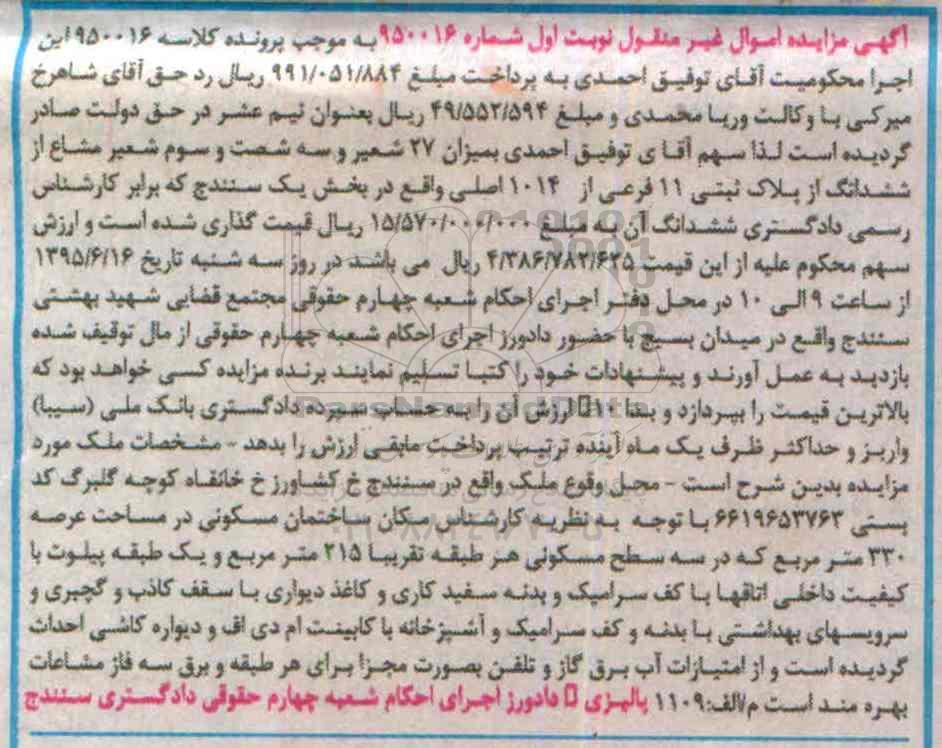 آگهی مزایده اموال غیر منقول نوبت اول شماره ۹۵۰۰۱۶ به موجب پرونده کلاسه ۹۵۰۰۱۶ این
اجرا محکومیت آقای توفیق احمدی به پرداخت مبلغ ۹۹۱/۰۵۱/۸۸۴ ریال رد حق آقای شاهرخ
میرکی با وکالت وریا محمدی و مبلغ ۴۹/۵۵۲/۵۹۴ ریال بعنوان نیم عشر در حق دولت صادر
گردیده است لذا سهم آقا ی توفیق احمدی بمیزان ۲۷ شعیر و سه شصت و سوم شعیر مشاع از
ششدانگ از پلاک ثبتی ۱۱ فرعی از ۱۰۱۴ اصلی واقع در بخش یک سنندج که برابر کارشناس
رسمی دادگستری ششدانگ آن به مبلغ ۱۵/۵۷۰/۰۰۰/۰۰۰ ریال قیمت گذاری شده است و ارزش
سهم محکوم علیه از این قیمت ۴/۳۸۶/۷۸۲/۶۲۵ ریال می باشد در روز سه شنبه تاریخ ۱۳۹۵/۶/۱۶
از ساعت ۹ الی ۱۰ در محل دفتر اجرای احکام شعبه چهارم حقوقی مجتمع قضایی شهید بهشتی
سنندج واقع در میدان بسیج با حضور دادورز اجرای احکام شعبه چهارم حقوقی از مال توقیف شده
بازدید به عمل آورند و پیشنهادات خود را کتبا تسلیم نمایند برنده مزایده کسی خواهد بود که
بالاترین قیمت را بپردازد و بدا ۱۰ ارزش آن را به حساب سپرده دادگستری بانک ملی (سیبا)
واریز و حداکثر ظرف یک ماه آینده ترتیب پرداخت مابقی ارزش را بدهد - مشخصات ملک مورد
مزایده بدین شرح است - محل وقوع ملک واقع در سنندج خ کشاورز خ خانقاه کوچه گلبرگ کد
پستی ۶۶۱۹۶۵۳۷۶۳ با توجه به نظریه کارشناس مکان ساختمان مسکونی در مساحت عرصه
۳۳۰ متر مربع که در سه سطح مسکونی هر طبقه تقریبا ۲۱۵ متر مربع و یک طبقه پیلوت با
کیفیت داخلی اتاقها با کف سرامیک و بدنه سفید کاری و کاغذ دیواری با سقف کاذب و گچبری و
سرویسهای بهداشتی با بدنه و کف سرامیک و آشپزخانه با کابینت ام دی اف و دیواره کاشی احداث
گردیده است و از امتیازات آب برق گاز و تلفن بصورت مجزا برای هر طبقه و برق سه فاز مشاعات
بهره مند است م/الف:۱۱۰۹ پالیزی دادورز اجرای احکام شعبه چهارم حقوقی دادگستری سنندج
ParsNamadData